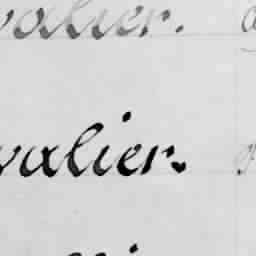 valier.
valier.